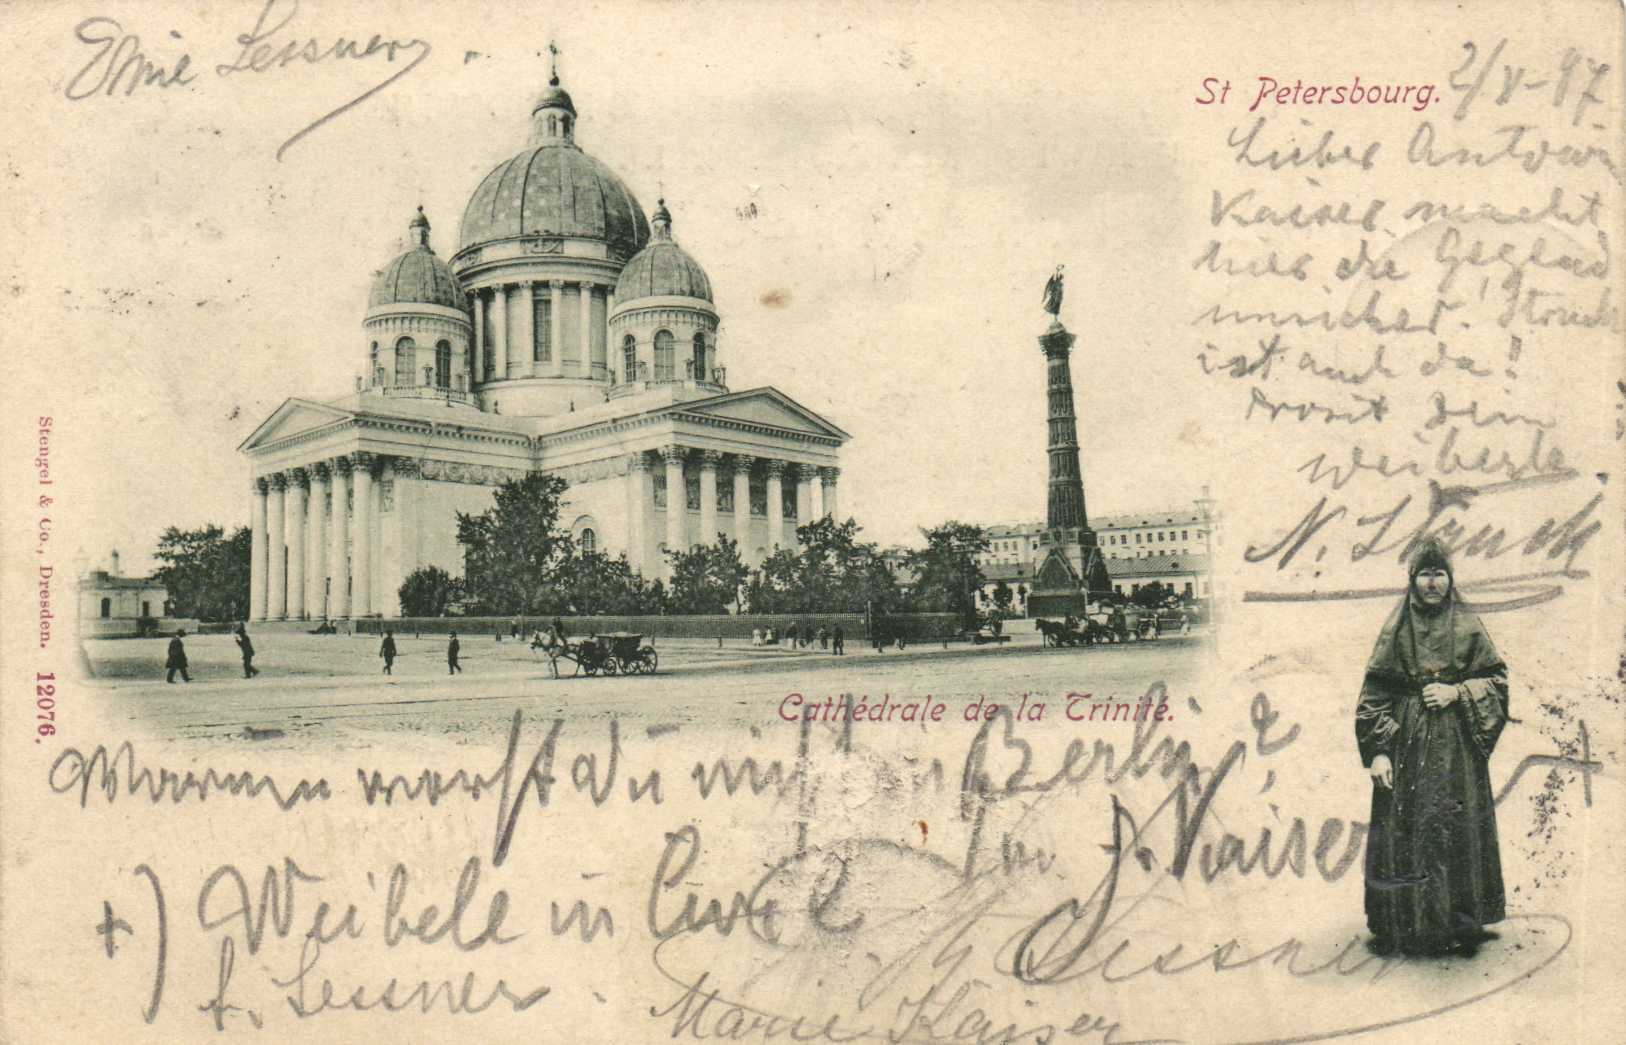 Emie Lessner
St Petersbourg. 2/V-97
Lieber
Kaiser macht
hier die
unsicher. Struck
ist auch da!
Prosit Dein
N. Struck
Stengel & Co., Dresden. 12076.
Cathédrale de la Trinité.
Warum warst du nicht in Berlin?
Kaiser
+) Weibele in Civil
f. Lessner
Lessner
Marie Kaiser